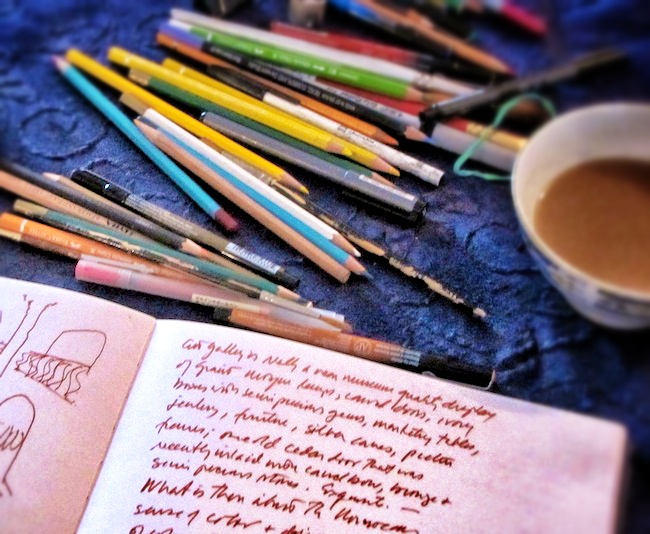 Art gallery is really a mini museum quality display
of giant antique lamps, carved doors, ivory
boxes with semi precious gems, marketry tables,
jewelry, furniture, silver canes, picture
frames; one old cedar door that was
recently inlaid with camel bone, bronze +
semi precious stones. Exquisite. —
What is then about the Moroccan
sense of color +